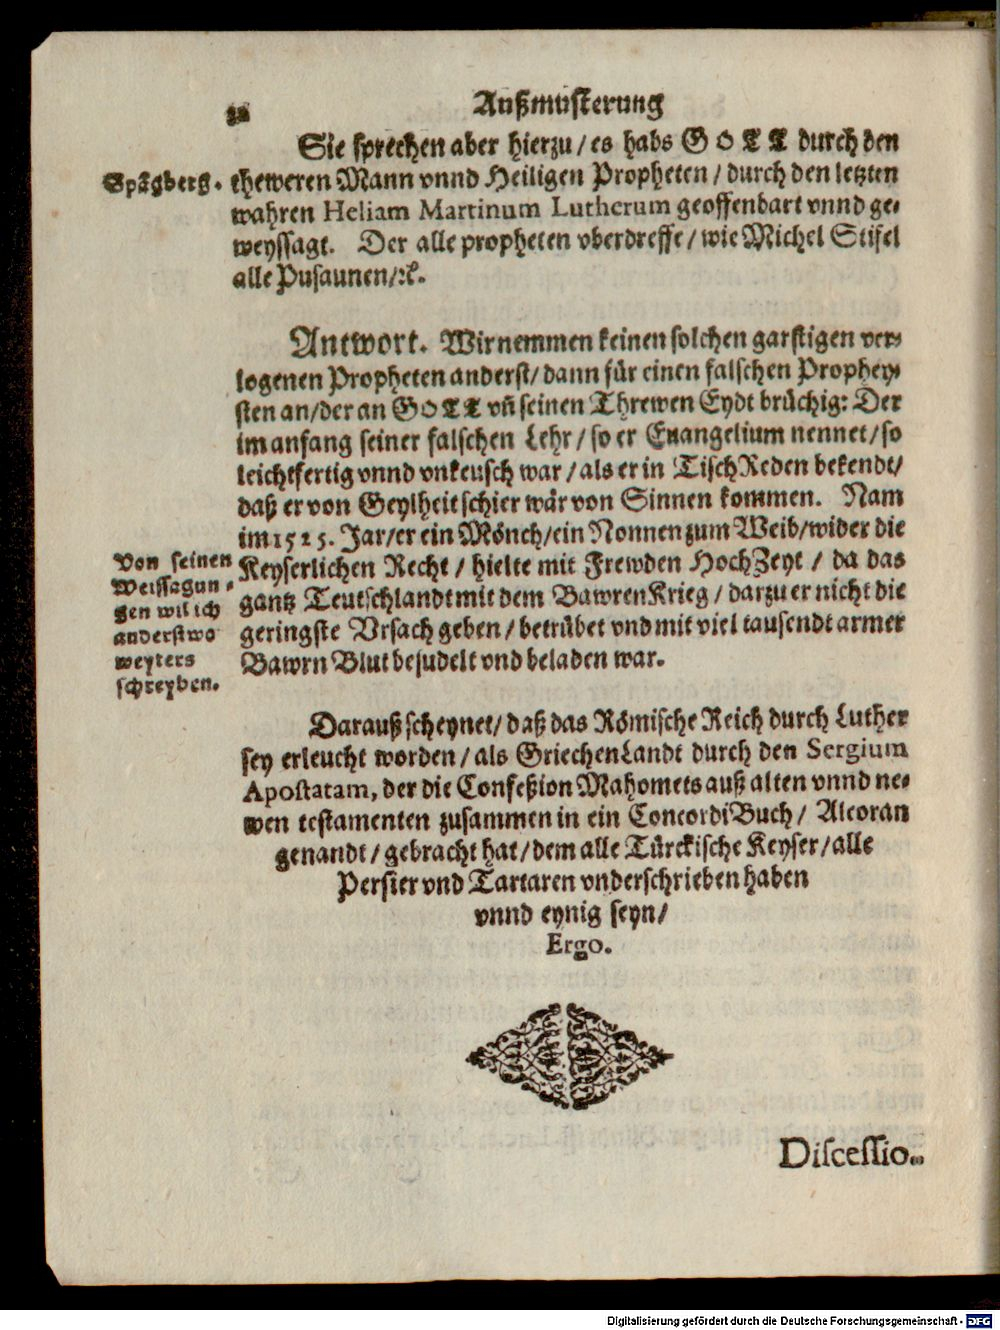 32
Außmusterung
Sie sprechen aber hierzu / es habs GOTT durch den
Spāgberg.
theweren Mann vnnd Heiligen Propheten / durch den letzten
wahren Heliam Martinum Lutherum geoffenbart vnnd ge-
weyssagt. Der alle propheten vberdreffe / wie Michel Stifel
alle Pusaunen / ꝛc.
Antwort. Wir nemmen keinen solchen garstigen ver-
logenen Propheten anderst / dann für einen falschen Prophey-
sten an / der an GOTT vñ seinen Threwen Eydt brüchig: Der
im anfang seiner falschen Lehr / so er Euangelium nennet / so
leichtfertig vnnd vnkeusch war / als er in TischReden bekendt /
daß er von Geylheit schier wär von Sinnen kommen. Nam
im 1525. Jar / er ein Mönch / ein Nonnen zum Weib / wider die
Von seinen
Weissagun-
gen wil ich
anderstwo
weyters
schreyben.
Keyserlichen Recht / hielte mit Frewden HochZeyt / da das
gantz Teutschlandt mit dem BawrenKrieg / darzu er nicht die
geringste Vrsach geben / betrübet vnd mit viel tausendt armer
Bawrn Blut besudelt vnd beladen war.
Darauß scheynet / daß das Römische Reich durch Luther
sey erleucht worden / als GriechenLandt durch den Sergium
Apostatam, der die Confeßion Mahomets auß alten vnnd ne-
wen testamenten zusammen in ein ConcordiBuch / Alcoran
genandt / gebracht hat / dem alle Türckische Keyser / alle
Persier vnd Tartaren vnderschrieben haben
vnnd eynig seyn /
Ergo.
Discessio..
Digitalisierung gefördert durch die Deutsche Forschungsgemeinschaft - DFG